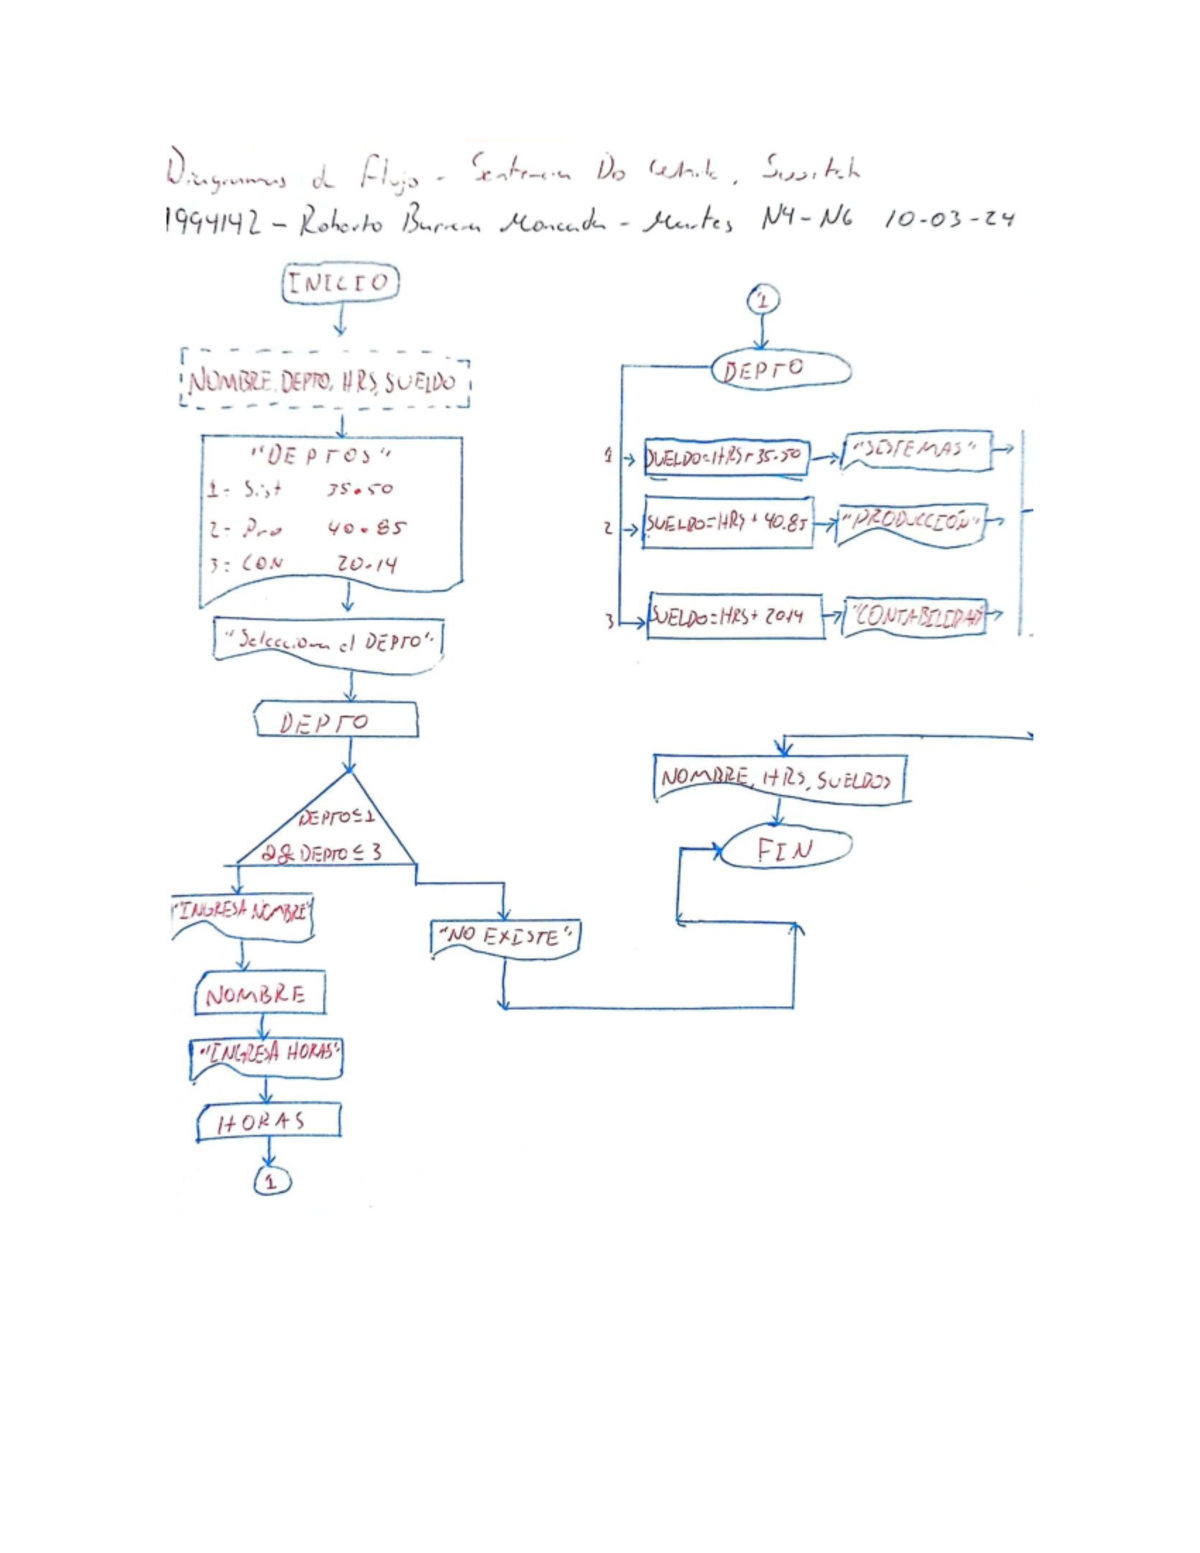 Diagramas de Flujo - Sentencia Do While, Switch
1994142 - Roberto Barrera Moncada - Martes N4-N6 10-03-24
INICIO
NOMBRE, DEPTO, HRS, SUELDO
"DEPTOS"
1- Sist 35.50
2- Pro 40.85
3: CON 20.14
"Selecciona el DEPTO"
DEPTO
DEPTO≤1
&& DEPTO≤3
"INGRESA NOMBRE"
NOMBRE
"INGRESA HORAS"
HORAS
1
"NO EXISTE"
1
DEPTO
1 SUELDO=HRS+35.50 "SISTEMAS"
2 SUELDO=HRS+40.85 "PRODUCCIÓN"
3 SUELDO=HRS+2014 "CONTABILIDAD
NOMBRE, HRS, SUELDOS
FIN